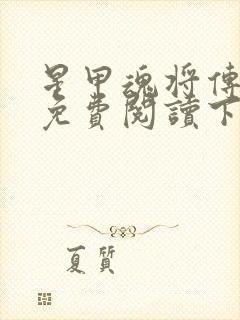 星甲魂將傳
免費閱讀下
夏質